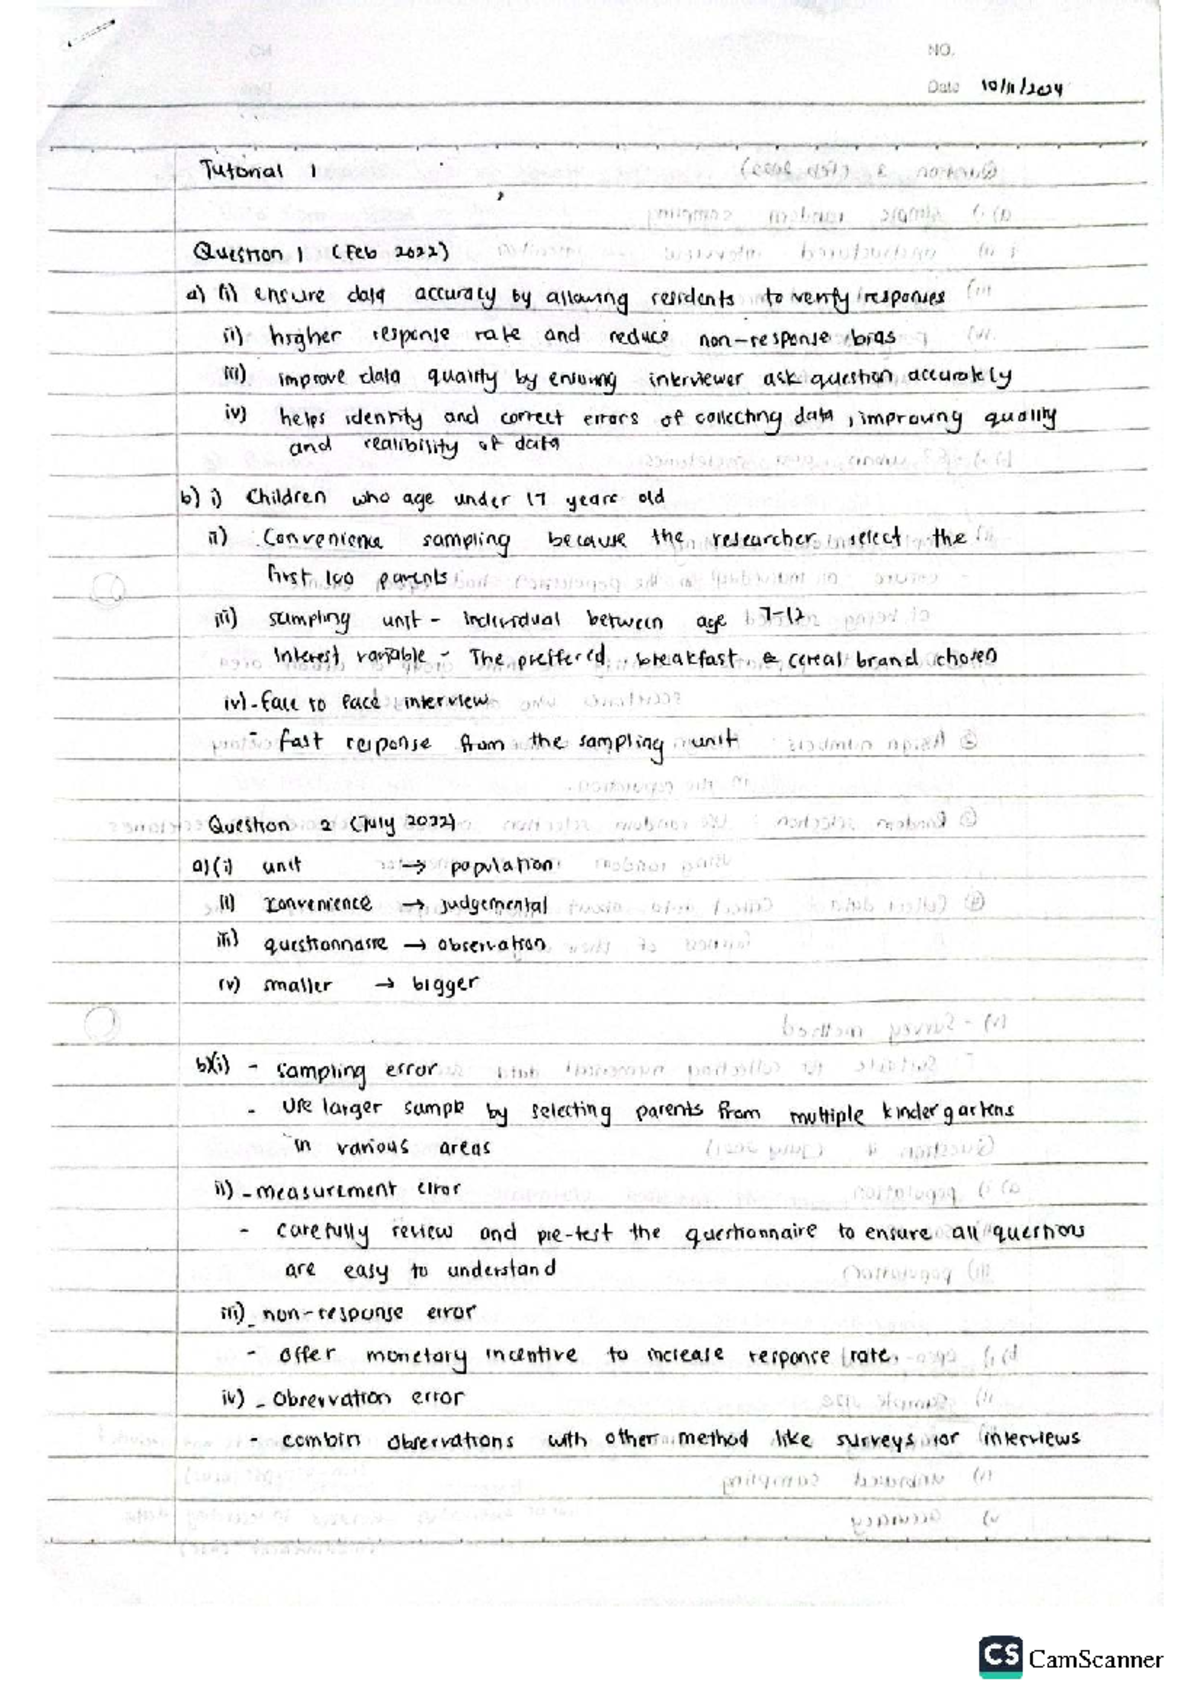 NO.
Date 10/11/2024
Tutorial 1
Question 1 (Feb 2022)
a) (i) ensure data accuracy by allowing residents to verify responses
ii) higher response rate and reduce non-response bias
iii) improve data quality by ensuring interviewer ask question accurately
iv) helps identity and correct errors of collecting data, improving quality
and realibility of data
b) i) Children who age under 17 years old
ii) Convenience sampling because the researcher select the
first 100 parents
iii) sampling unit - individual between age 7-12
Interest variable - The preffered breakfast & cereal brand chosen
iv) - face to face interview
- fast response from the sampling unit
Question 2 (July 2022)
a) (i) unit → population
(ii) convenience → judgemental
iii) questionnaire → observation
(iv) smaller → bigger
b)(i) - sampling error
- Use larger sample by selecting parents from multiple kindergartens
in various areas
ii) - measurement error
- carefully review and pre-test the questionnaire to ensure all questions
are easy to understand
iii) - non-response error
- offer monetary incentive to increase response rate.
iv) - observation error
- combin observations with other method like surveys or interviews
CS CamScanner